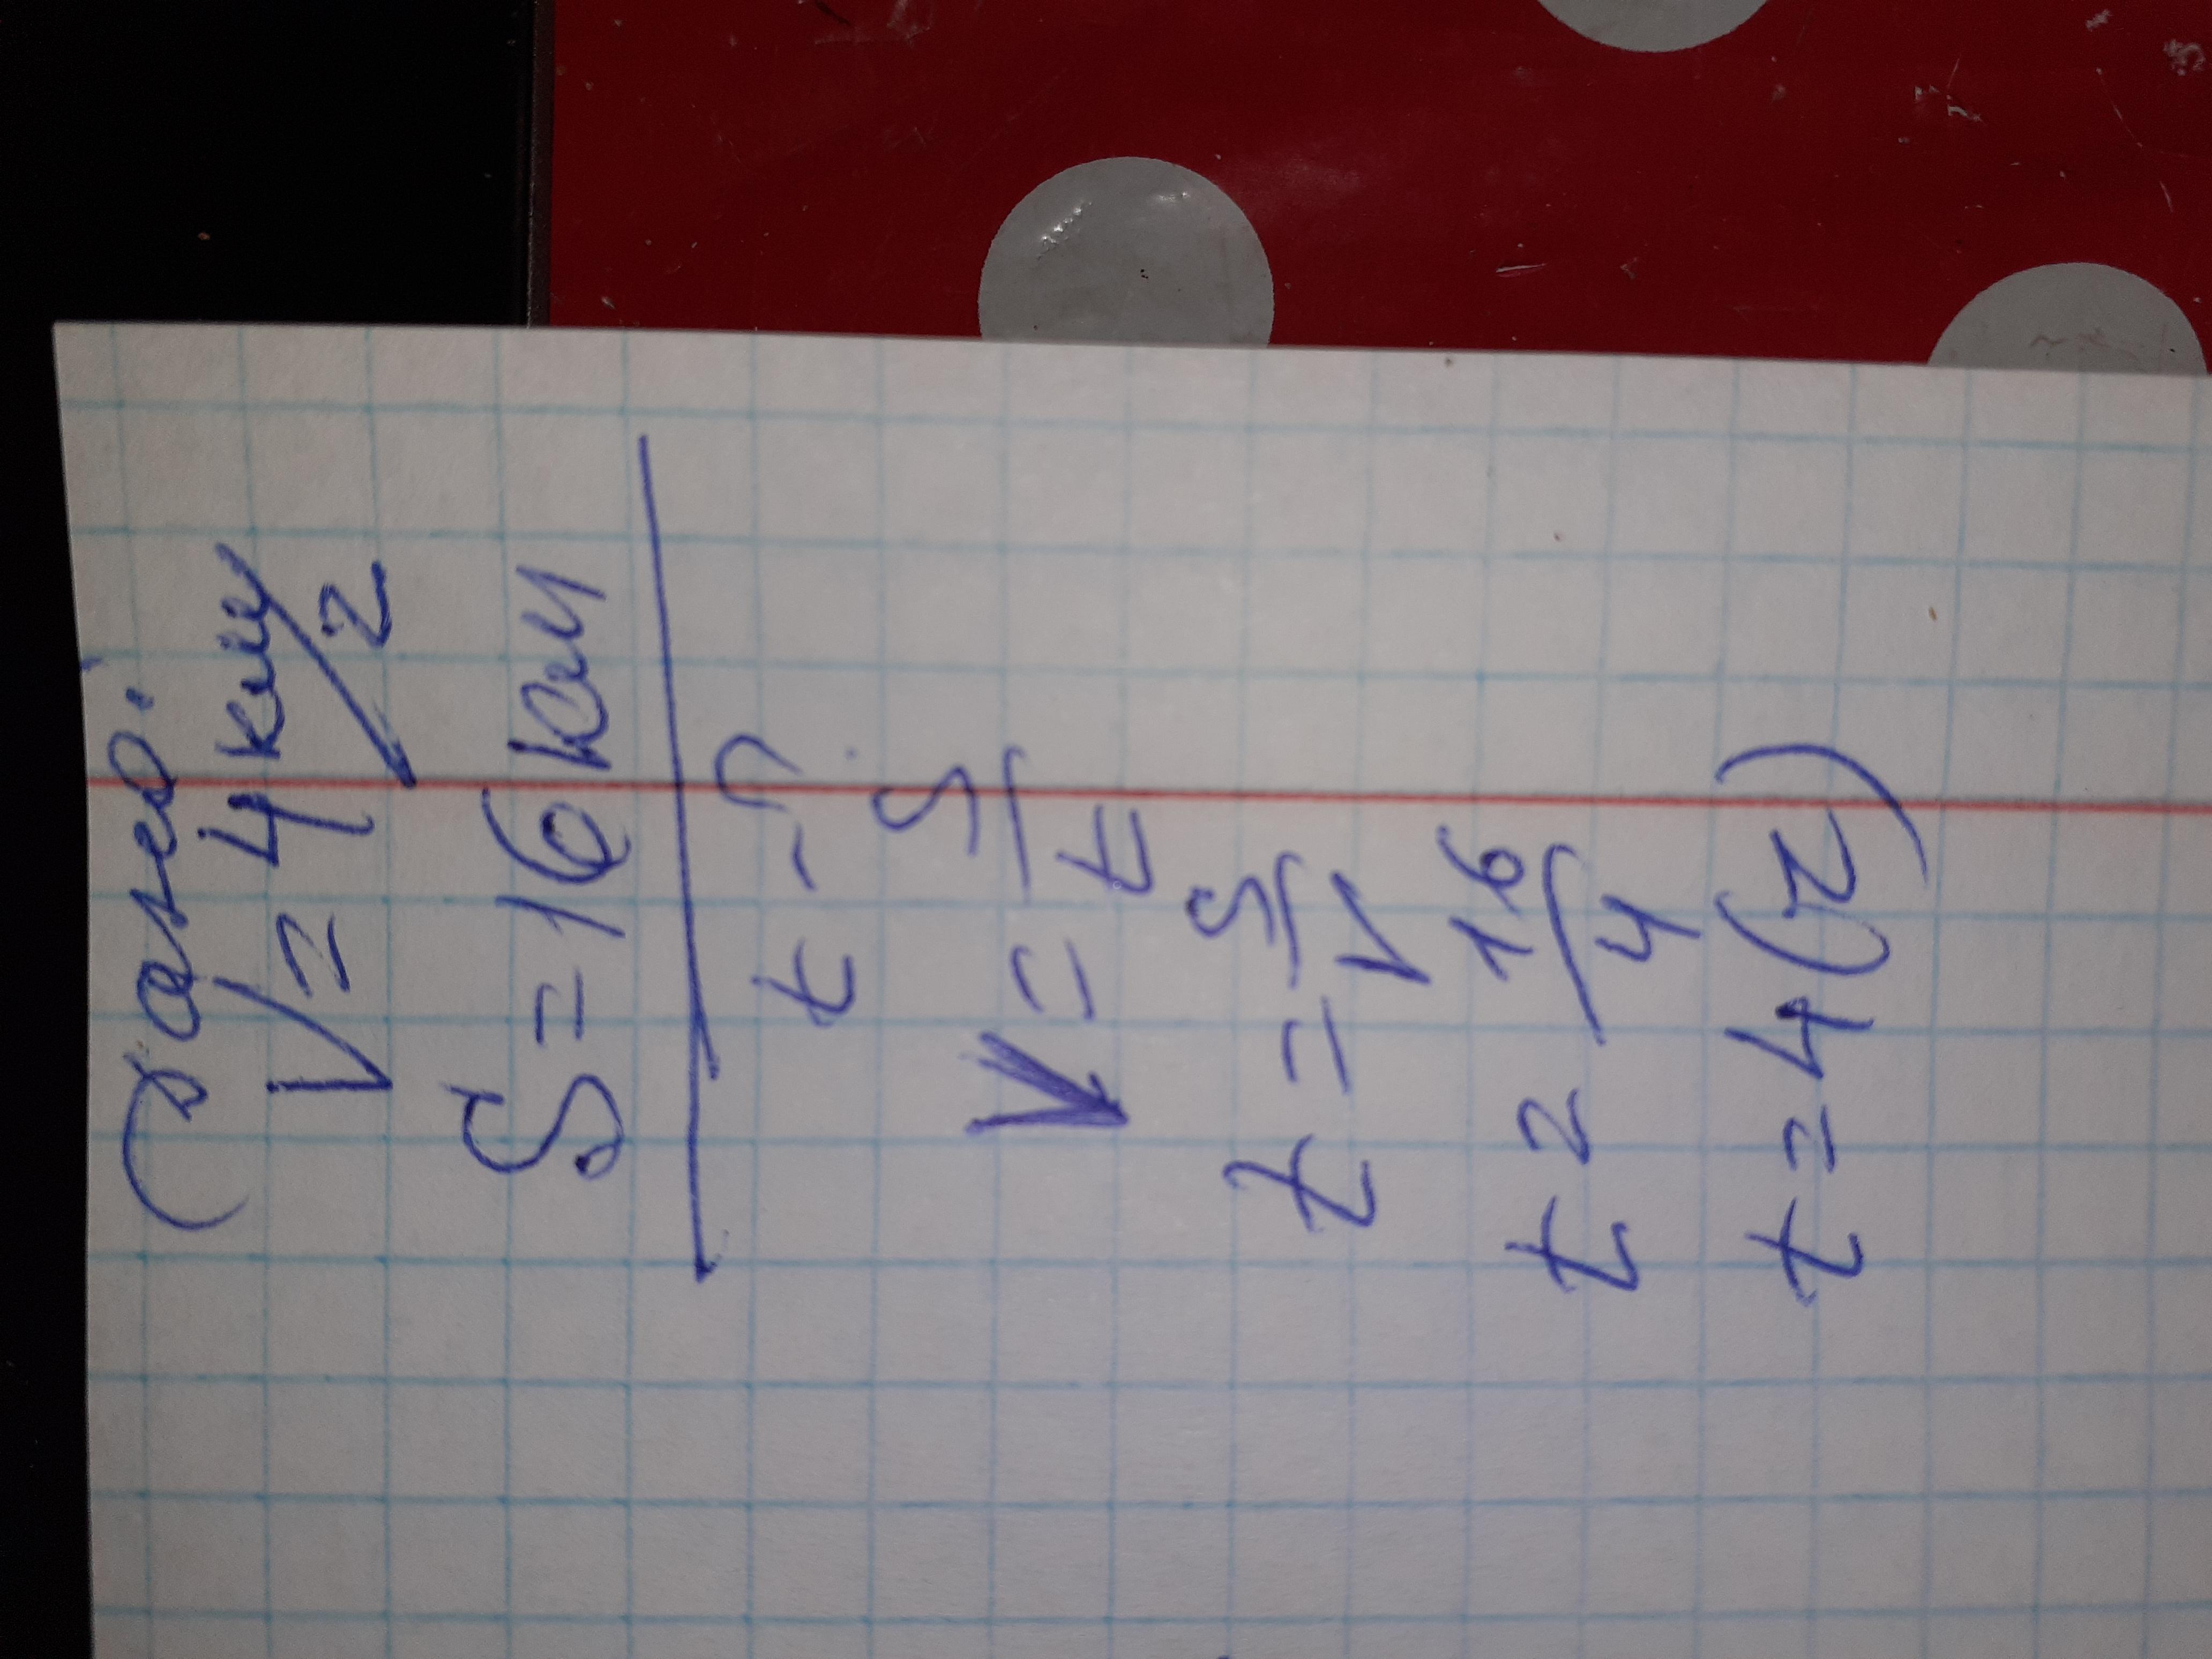 Дано:
V = 4 км/г
S = 16 км
t - ?
V = S/t
t = S/V
t = 16/4
t = 4 (г)